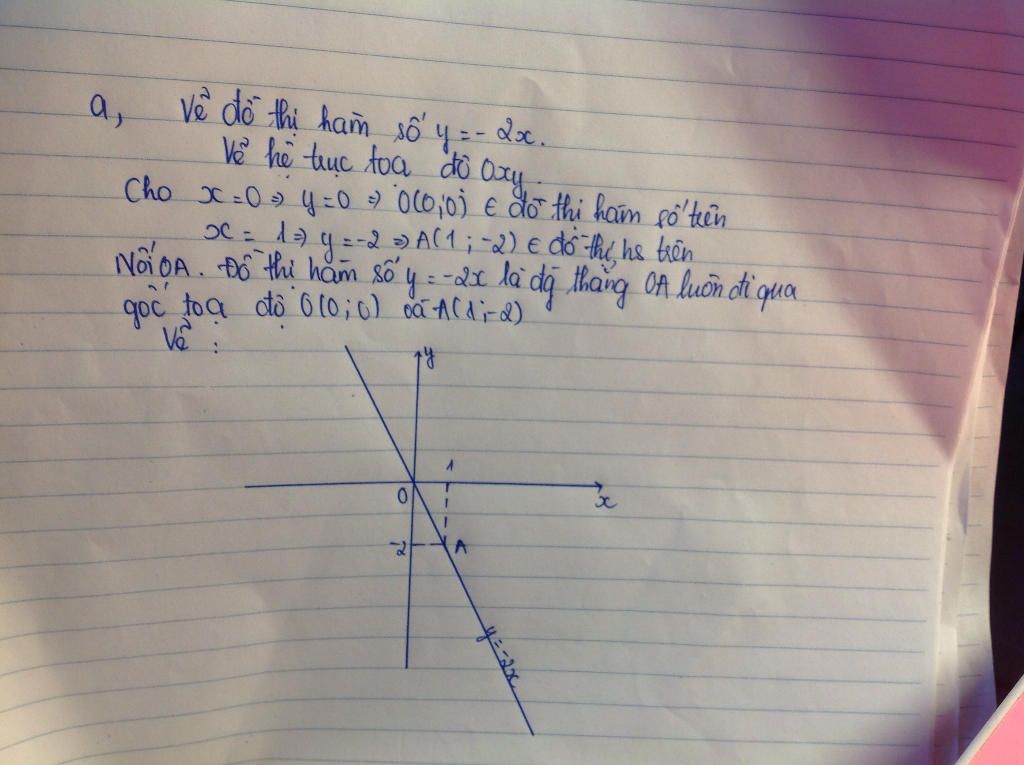 a, Vẽ đồ thị hàm số y = - 2x.
Vẽ hệ trục toạ độ Oxy.
Cho x = 0 ⇒ y = 0 ⇒ O(0;0) ∈ đồ thị hàm số trên
x = 1 ⇒ y = -2 ⇒ A(1; -2) ∈ đồ thị hs trên
Nối OA. Đồ thị hàm số y = -2x là đg thẳng OA luôn đi qua
gốc toạ độ O(0; 0) và A(1;-2)
Vẽ :
y
1
O
x
-2
A
y = -2x